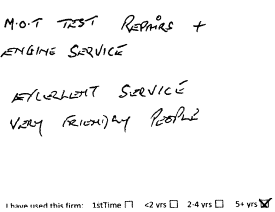 M.O.T TEST REPAIRS +
ENGINE SERVICE
EXCELLENT SERVICE
VERY FRIENDLY PEOPLE
I have used this firm: 1stTime ☐ <2 yrs ☐ 2-4 yrs ☐ 5+ yrs ☒